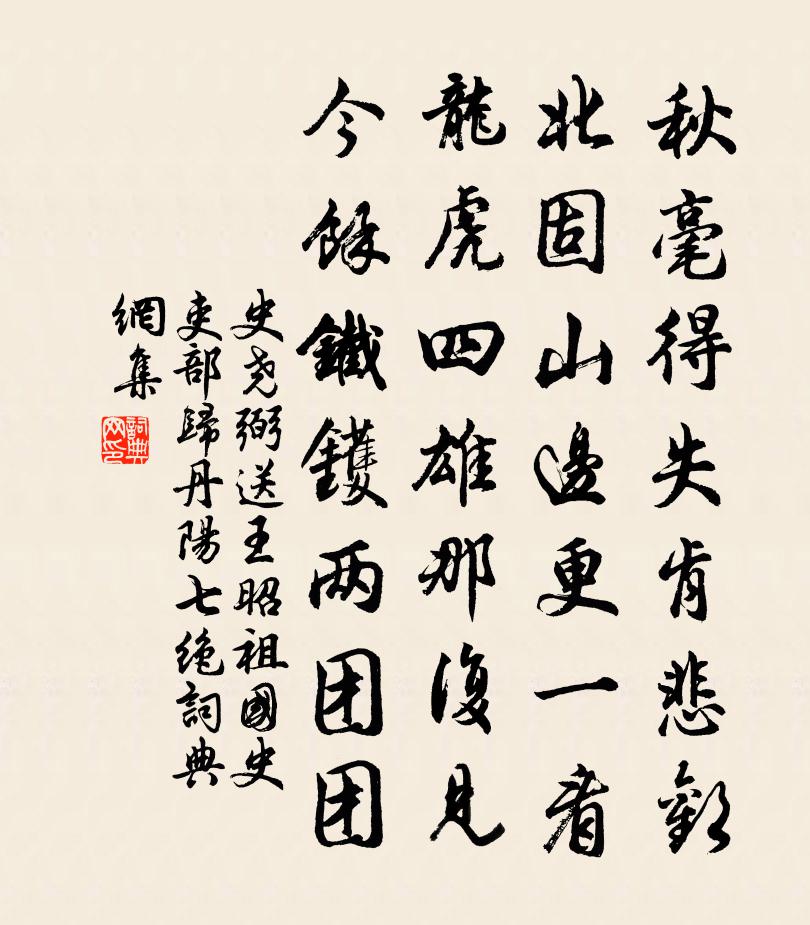 秋毫得失肯悲歡
北固山邊更一看
龍虎四雄那復見
今餘鐵鑊両团团
史尧弼送王昭祖國史
吏部歸丹陽七絶詞典
網集
詞典
网印